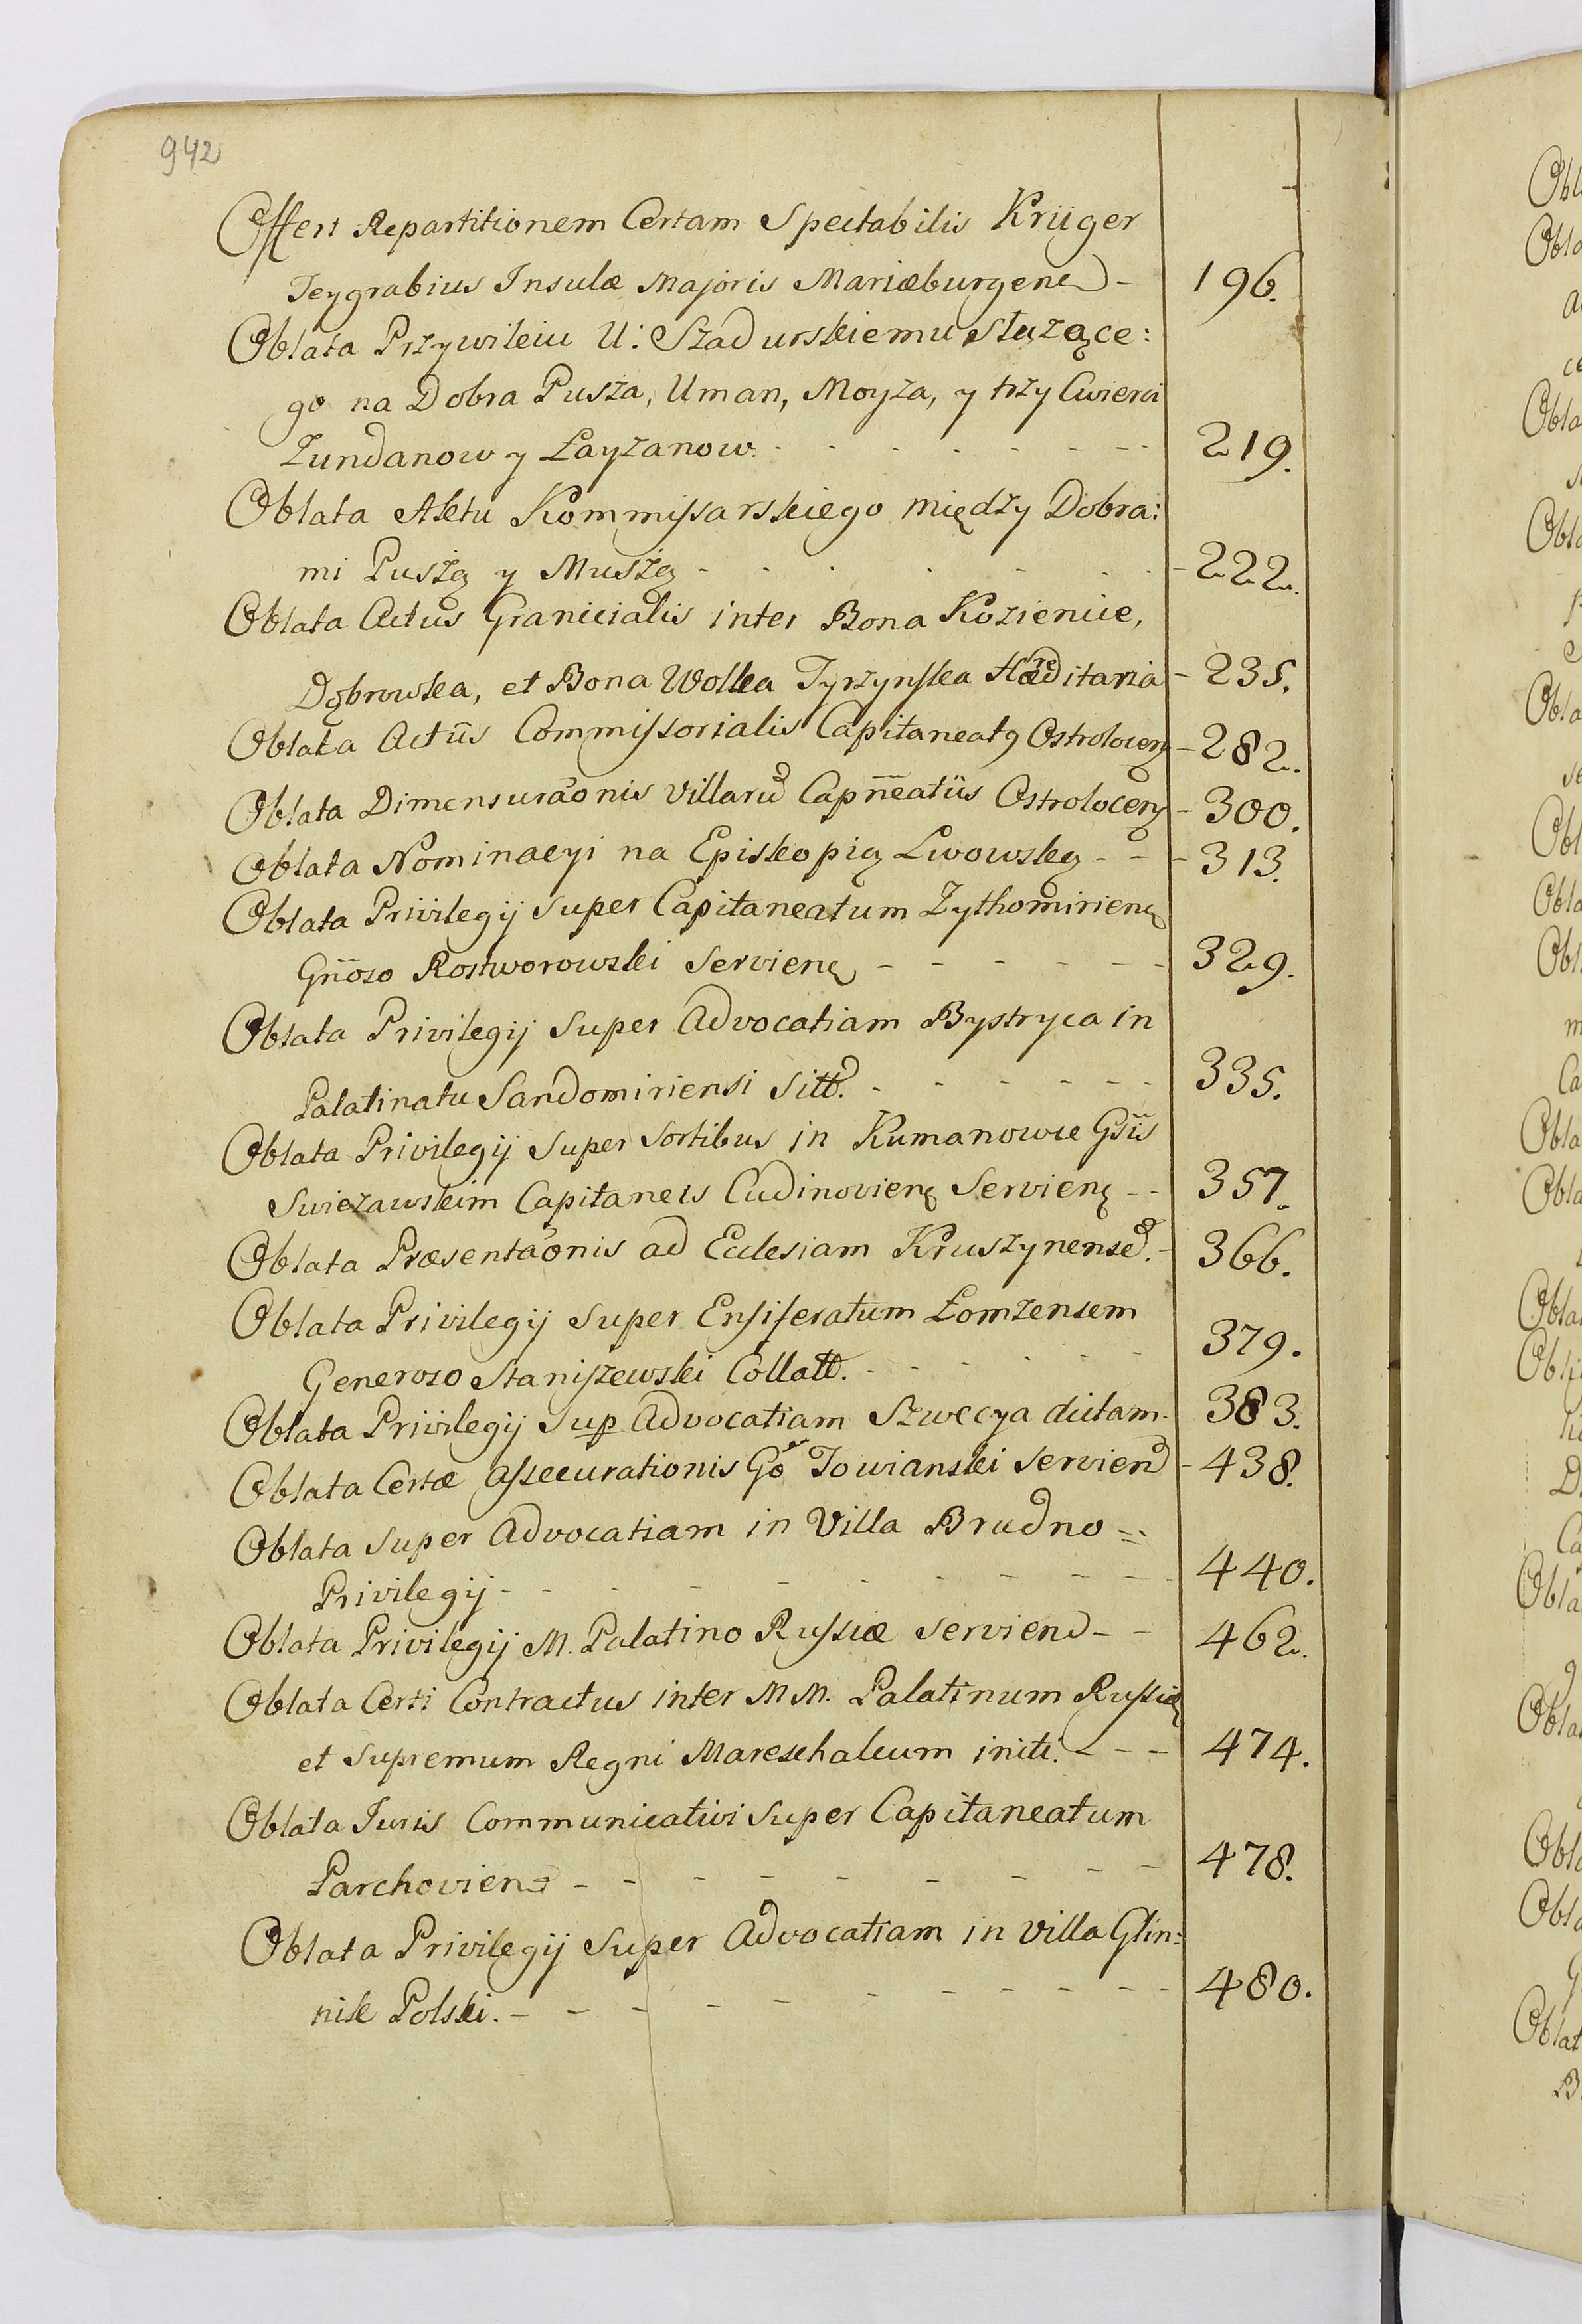 942
Offert Repartitionem Certam Spectabilis Krüger
Teygrabius Insulæ Majoris Mariæburgen - 196.
Oblata Przywileiu U: Szadurskiemu służące:
go na Dobra Pusza, Uman, Moyza, y trzy Cwierci
Zundanow y Łayzanow. - - - - - - 219.
Oblata Aktu Kommissarskiego między Dobra:
mi Puszą y Muszą - - - - - - 222.
Oblata Actus Granicialis inter Bona Kozienice,
Dąbrowka, et Bona Wolka Tyrzynska Hæreditaria - 235.
Oblata Actûs Commissorialis Capitaneatq Ostrolocen - 282.
Oblata Dimensuraonis Villaru Capneatûs Ostrolocen - 300.
Oblata Nominacyi na Episkopią Lwowską - - - 313.
Oblata Privilegij super Capitaneatum Zythomirien
Gnoso Rostworowski Servien - - - - - - 329.
Oblata Privilegij Super Advocatiam Bystryca in
Palatinatu Sandomiriensi Sitt. - - - - - - 335.
Oblata Privilegij Super Sortibus in Kumanowce Gsis
Swiezawskim Capitaneis Cudinovien Servien - - 357.
Oblata Præsentaonis ad Ecclesiam Kruszynense. - 366.
Oblata Privilegij Super Ensiferatum Łomzensem
Generoso Staniszewski Collatt. - - - - - 379.
Oblata Privilegij Sup Advocatiam Szwecya dictam. 383.
Oblata Certæ Assecurationis Go Towianski servien - 438.
Oblata Super Advocatiam in Villa Brudno =
Privilegij - - - - - - - - 440.
Oblata Privilegij M. Palatino Russiæ servien - - 462.
Oblata Certi Contractus inter MM. Palatinum Russiæ
et Supremum Regni Mareschalcum initi. - - - 474.
Oblata Juris Communicativi Super Capitaneatum
Parchovien - - - - - - - - 478.
Oblata Privilegij Super Advocatiam in Villa Glin:
nik Polski. - - - - - - - - 480.